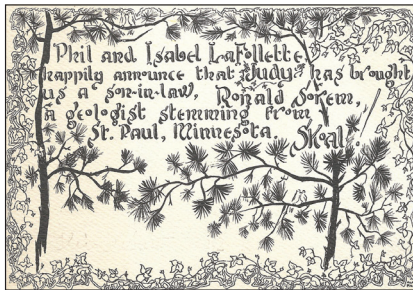 Phil and Isabel LaFollette
happily announce that Judy has brought
us a son-in-law, Ronald Sorem,
a geologist stemming from
St. Paul, Minnesota. Skal!